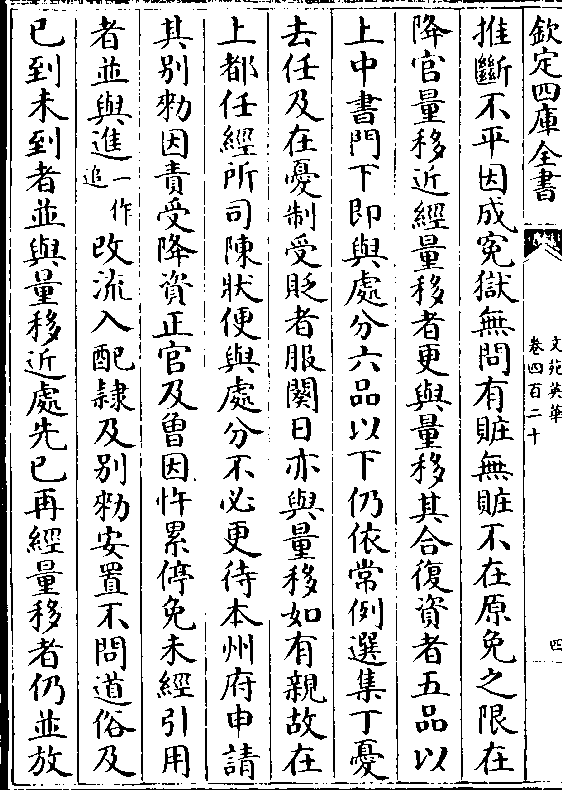 欽定四庫全書
文苑英華
卷四百二十
四
推斷不平因成寃獄無問有賍無賍不在原免之限在
降官量移近經量移者更與量移其合復資者五品以
上中書門下即與處分六品以下仍依常例選集丁憂
去任及在憂制受貶者服闋日亦與量移如有親故在
上都任經所司陳狀便與處分不必更待本州府申請
其别勑因責受降資正官及曾因忤累停免未經引用
者並與進一作追改流入配隷及别勑安置不問道俗及
已到未到者並與量移近處先已再經量移者仍並放